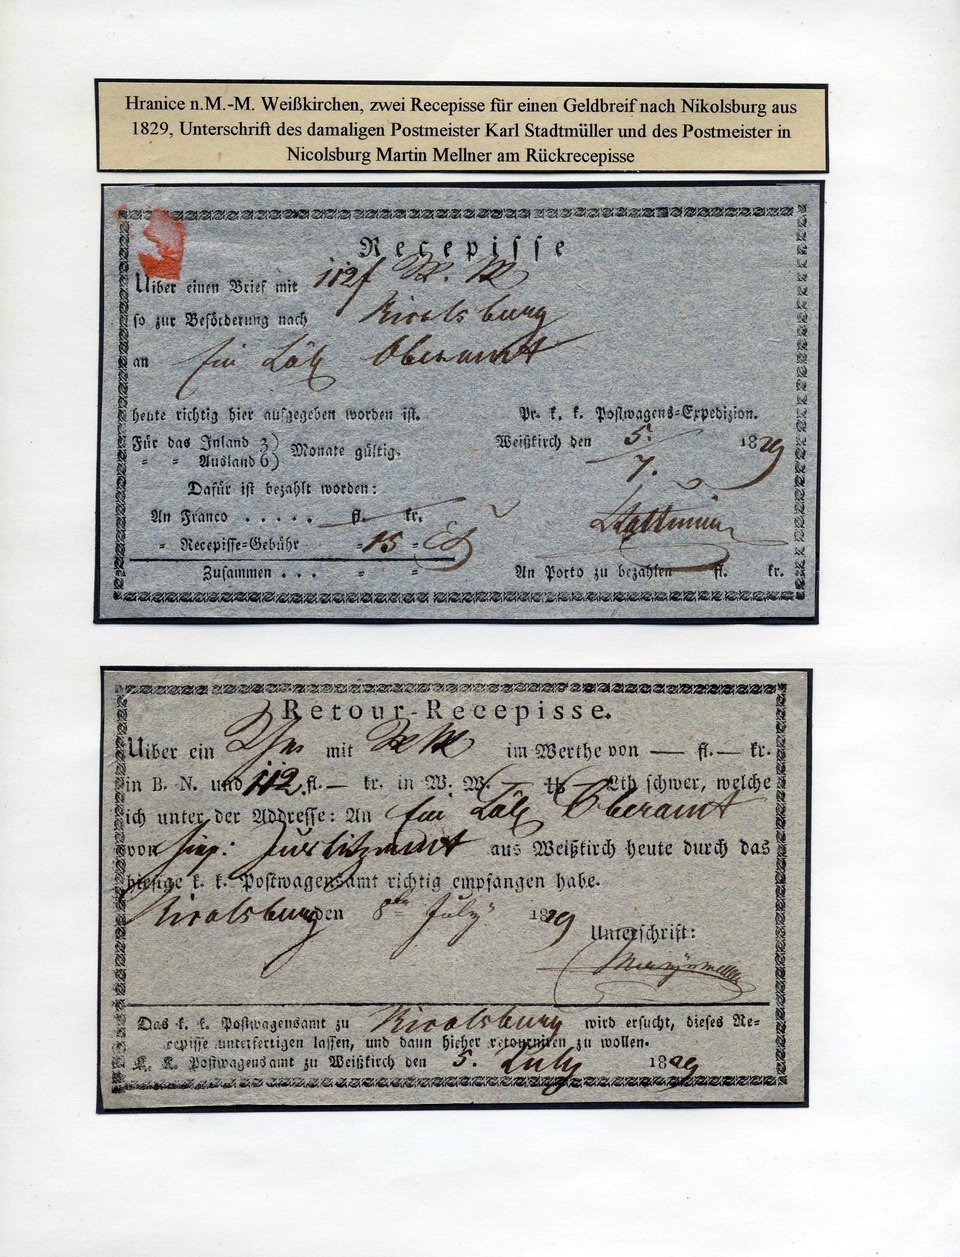 Hranice n.M.-M. Weißkirchen, zwei Recepisse für einen Geldbreif nach Nikolsburg aus
1829, Unterschrift des damaligen Postmeister Karl Stadtmüller und des Postmeister in
Nicolsburg Martin Mellner am Rückrecepisse
Recepisse
Uiber einen Brief mit 112 f W. W
so zur Beförderung nach Nicolsburg
an Ein Löbl Oberamt
heute richtig hier aufgegeben worden ist. Pr. k. k. Postwagens=Expedizion.
Für das Inland 3) Monate gültig. Weißkirch den 5. 1829
" " Ausland 6) 7.
Dafür ist bezahlt worden:
An Franco . . . . . fl. kr.
" Recepisse=Gebühr " 15 "
Zusammen . . . " " An Porto zu bezahlen fl. kr.
Retour-Recepisse.
Uiber ein mit W W im Werthe von — fl. — kr.
in B. N. und 112 fl. — kr. in W. W. Lth schwer, welche
ich unter der Addresse: An Ein Löbl Oberamt
von aus Weißkirch heute durch das
hiesige k. k. Postwagensamt richtig empfangen habe.
Nicolsburg den 8ten July 1829
Unterschrift:
Das k. k. Postwagensamt zu Nicolsburg wird ersucht, dieses Re=
cepisse unterfertigen lassen, und dann hieher retourniren zu wollen.
K. K. Postwagensamt zu Weißkirch den 5. July 1829